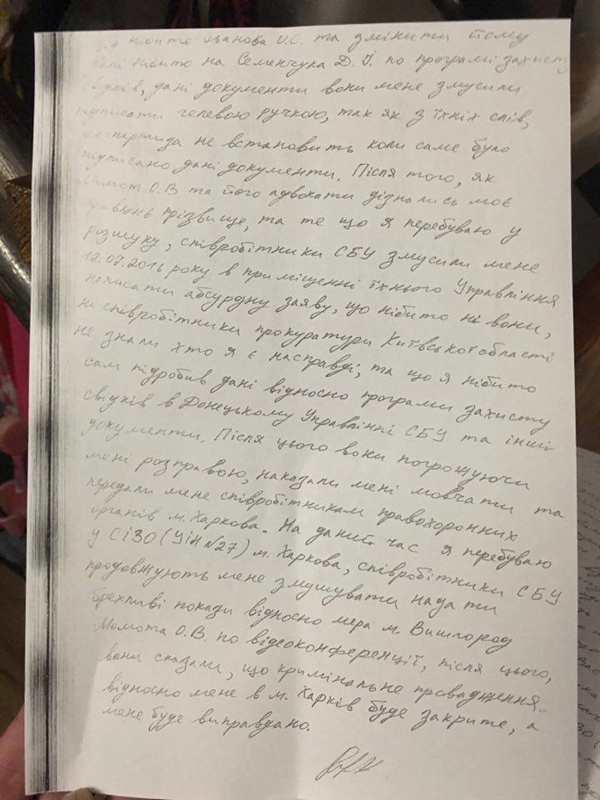 нібито Іванова О.С. та змінити йому
нібито на Семенчука Д.І. по програмі захисту
дані документи вони мене змусили
підписати гелевою ручкою, так як з їхніх слів,
експертиза не встановить коли саме було
підписано дані документи. Після того, як
Момот О.В та його адвокати дізнались моє
прізвище, та те що я перебуваю у
розшуку, співробітники СБУ змусили мене
12.07.2016 року в приміщенні їхнього Управління
написати абсурдну заяву, що нібито ні вони,
ні співробітники прокуратури Київської області
не знали хто я є насправді, та що я нібито
сам підробив дані відносно програми захисту
свідків в Донецькому Управлінні СБУ та інші
документи. Після цього вони погрожуючи
мені розправою, наказали мені мовчати та
передали мене співробітникам правохоронних
органів м. Харкова. На даний час я перебуваю
у СІЗО (УІН №27) м. Харкова, співробітники СБУ
продовжують мене змушувати надати
брехливі покази відносно мера м. Вишгород
Момота О.В по відеоконференції, після цього,
вони сказали, що кримінальне провадження
відносно мене в м. Харків буде закрите, а
мене буде виправдано.